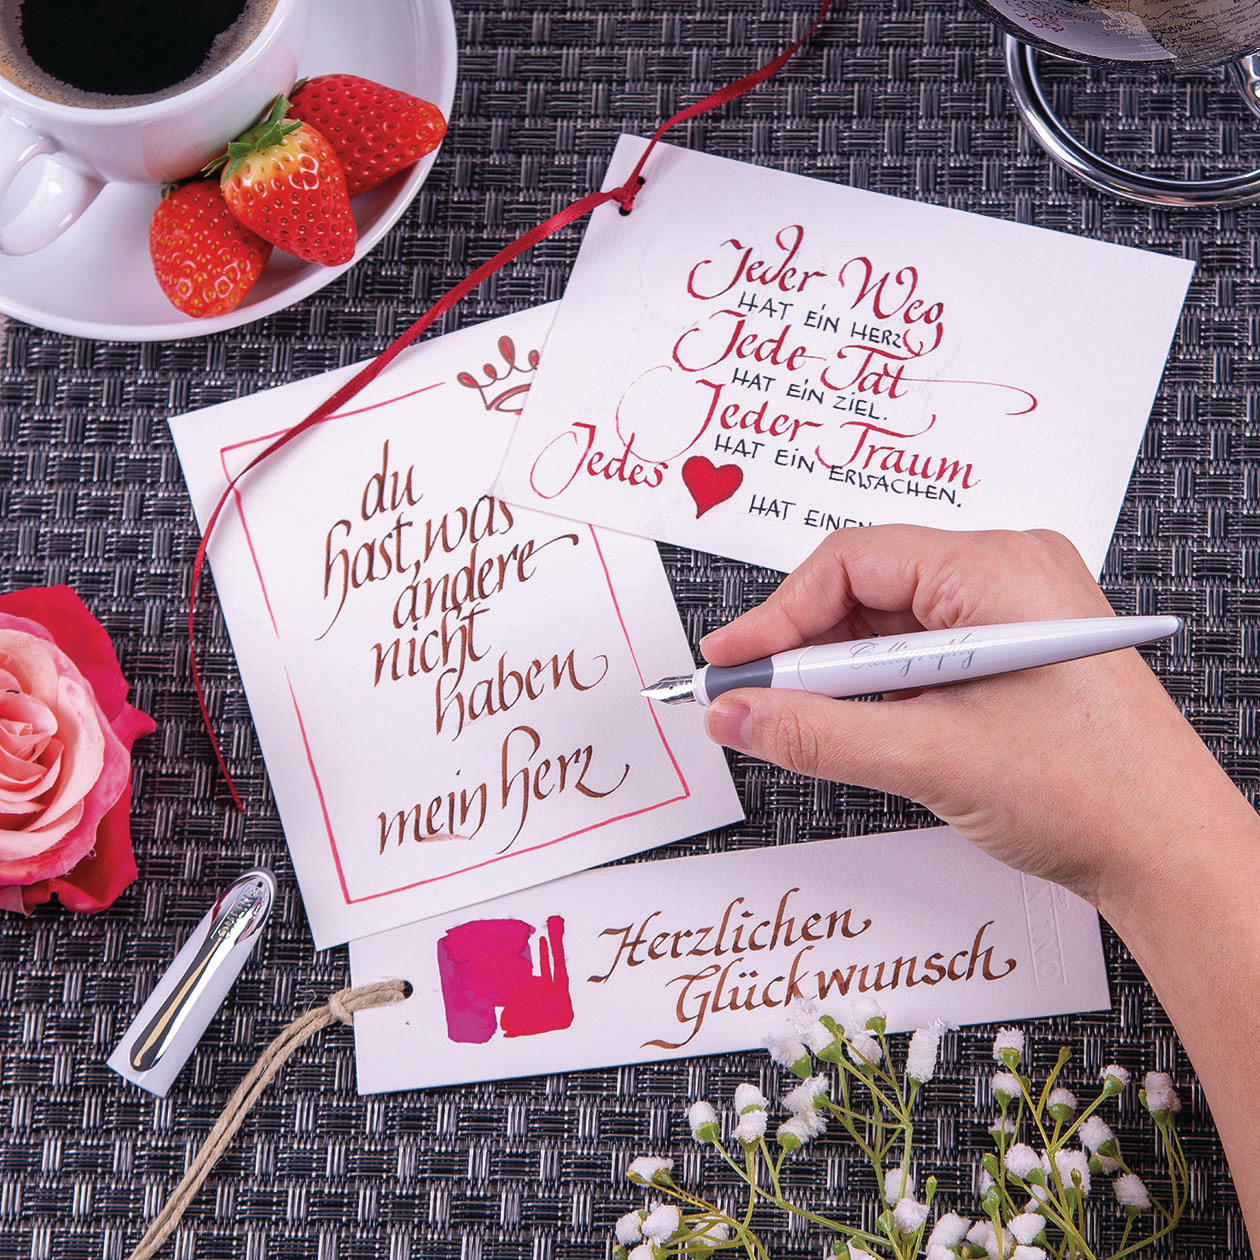 Jeder Weg
HAT EIN HERZ
Jede Tat
HAT EIN ZIEL.
Jeder Traum
HAT EIN ERWACHEN.
Jedes
HAT EINEN
du
hast, was
andere
nicht
haben
mein herz
Calligraphy
Herzlichen
Glückwunsch